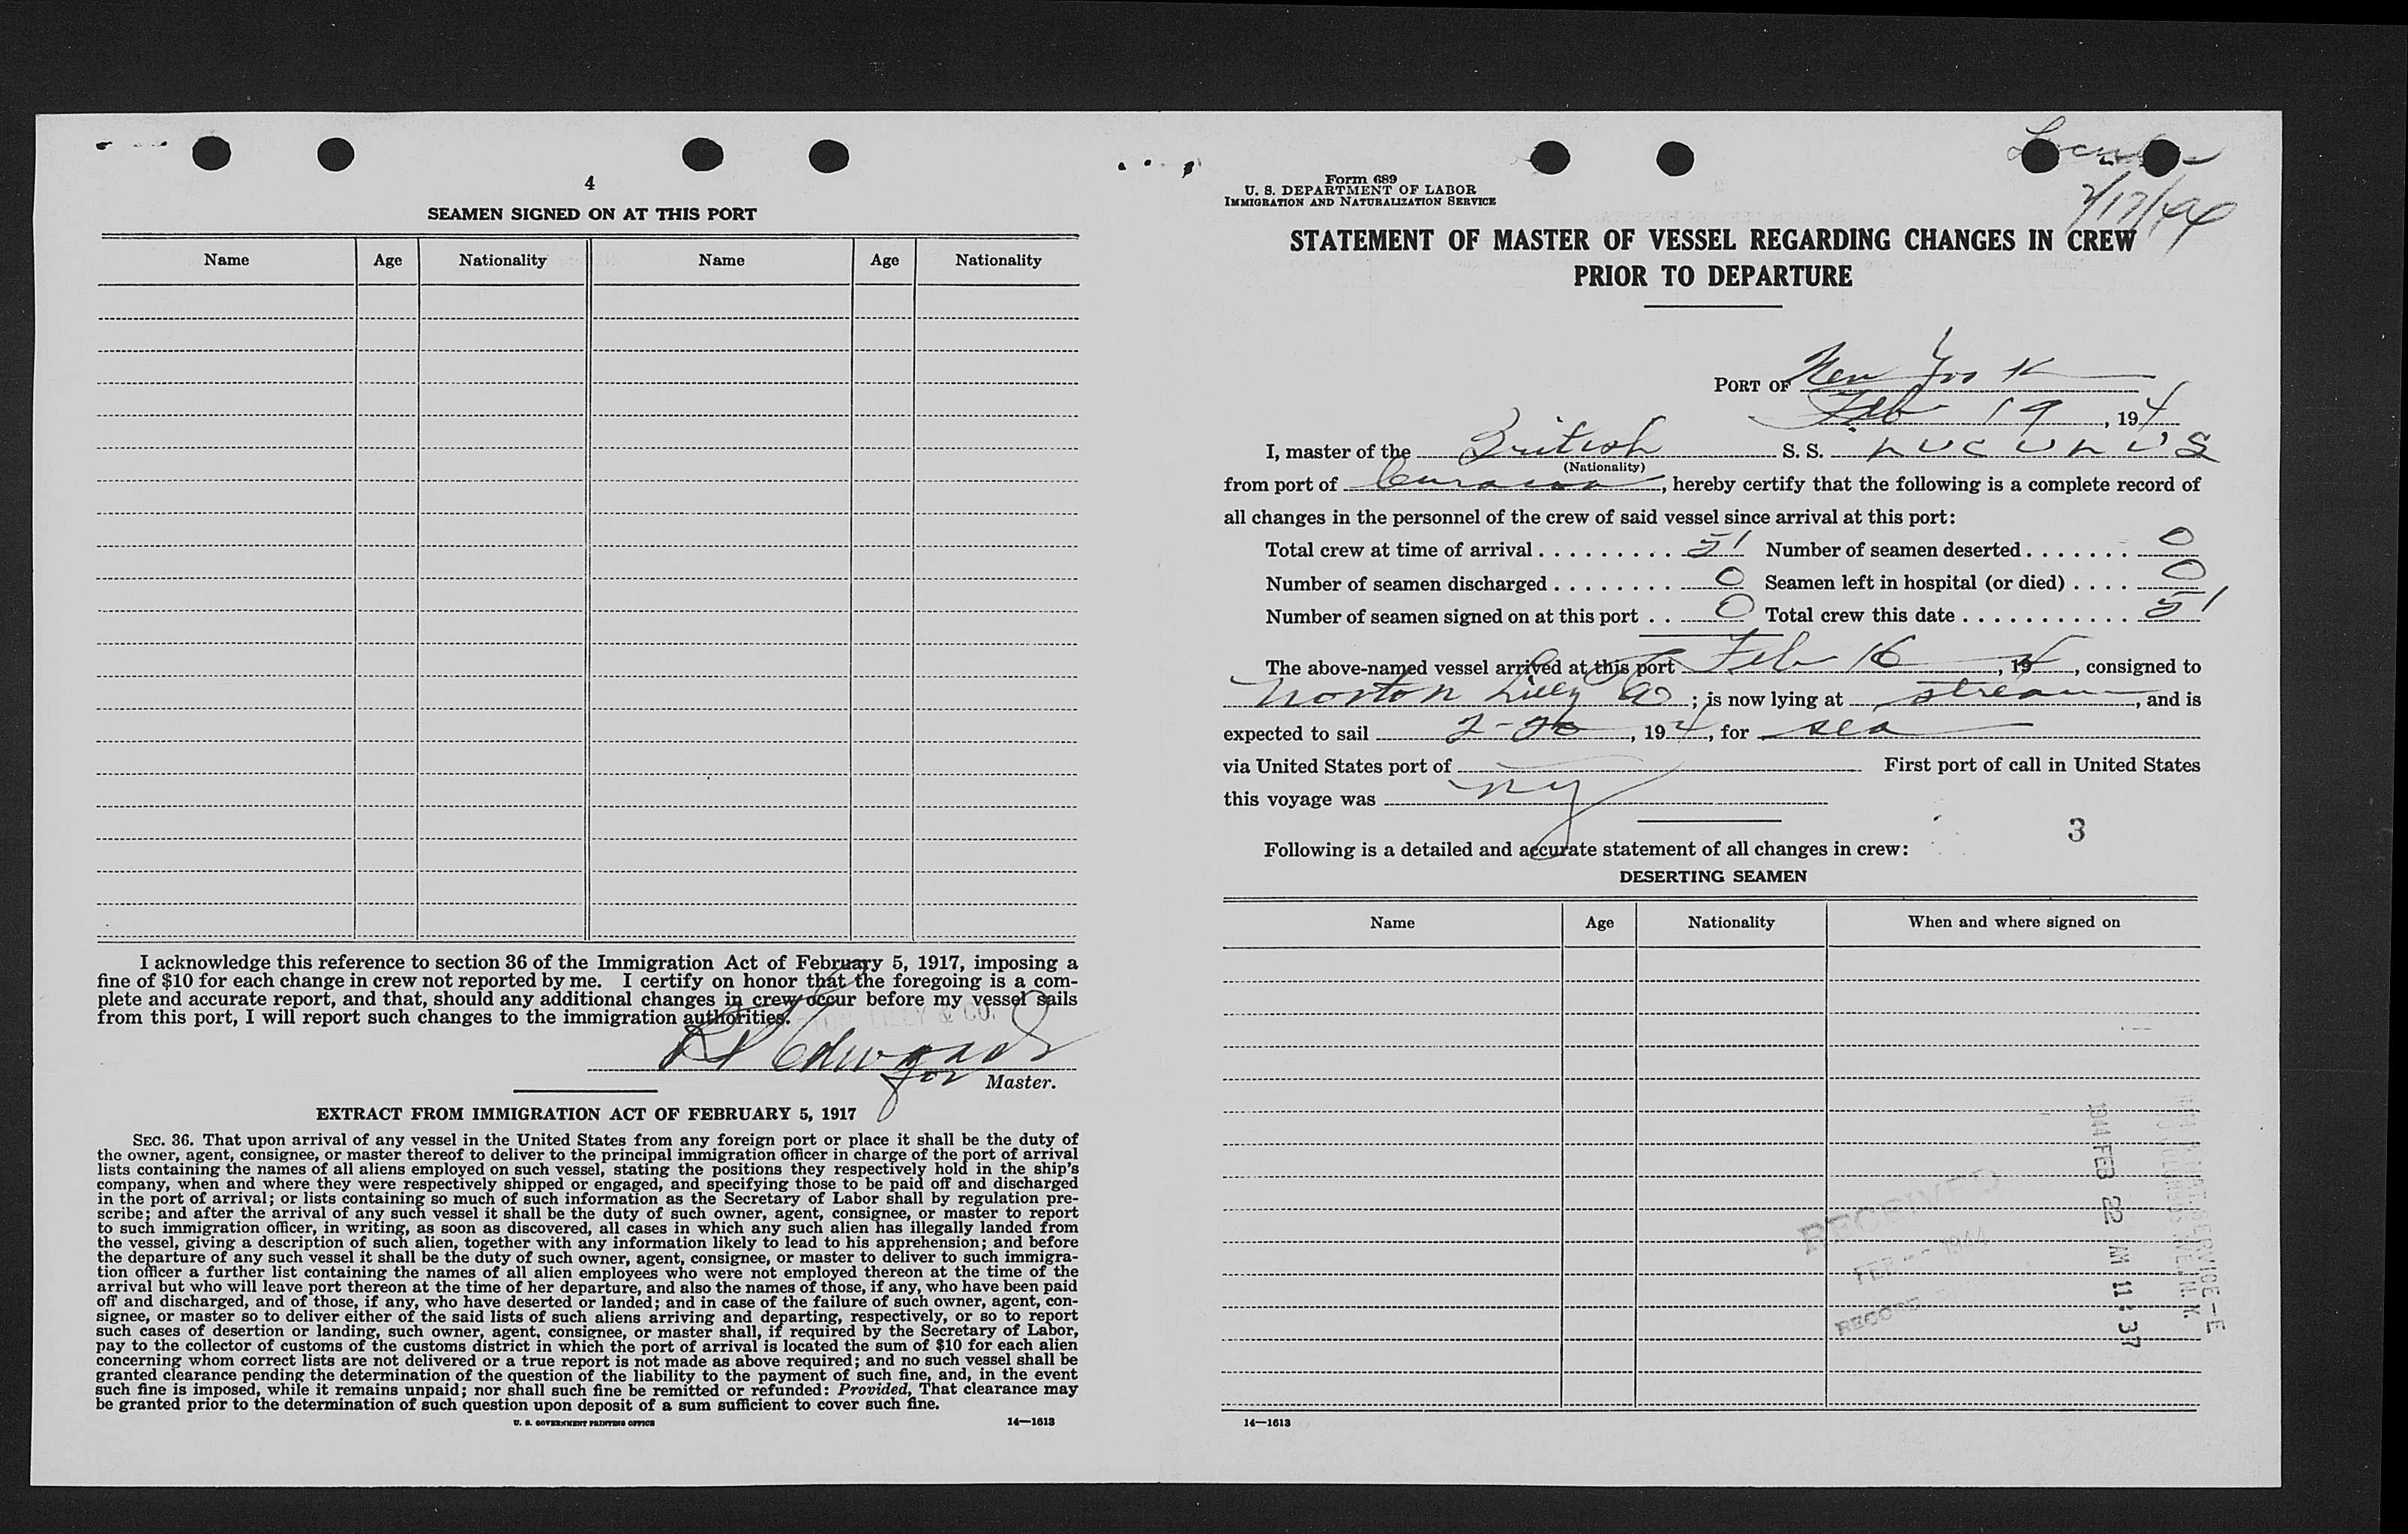 4
SEAMEN SIGNED ON AT THIS PORT
Name Age Nationality Name Age Nationality
I acknowledge this reference to section 36 of the Immigration Act of February 5, 1917, imposing a
fine of $10 for each change in crew not reported by me. I certify on honor that the foregoing is a com-
plete and accurate report, and that, should any additional changes in crew occur before my vessel sails
from this port, I will report such changes to the immigration authorities.
LILLY & CO.
Edwards
for Master.
EXTRACT FROM IMMIGRATION ACT OF FEBRUARY 5, 1917
SEC. 36. That upon arrival of any vessel in the United States from any foreign port or place it shall be the duty of
the owner, agent, consignee, or master thereof to deliver to the principal immigration officer in charge of the port of arrival
lists containing the names of all aliens employed on such vessel, stating the positions they respectively hold in the ship's
company, when and where they were respectively shipped or engaged, and specifying those to be paid off and discharged
in the port of arrival; or lists containing so much of such information as the Secretary of Labor shall by regulation pre-
scribe; and after the arrival of any such vessel it shall be the duty of such owner, agent, consignee, or master to report
to such immigration officer, in writing, as soon as discovered, all cases in which any such alien has illegally landed from
the vessel, giving a description of such alien, together with any information likely to lead to his apprehension; and before
the departure of any such vessel it shall be the duty of such owner, agent, consignee, or master to deliver to such immigra-
tion officer a further list containing the names of all alien employees who were not employed thereon at the time of the
arrival but who will leave port thereon at the time of her departure, and also the names of those, if any, who have been paid
off and discharged, and of those, if any, who have deserted or landed; and in case of the failure of such owner, agent, con-
signee, or master so to deliver either of the said lists of such aliens arriving and departing, respectively, or so to report
such cases of desertion or landing, such owner, agent, consignee, or master shall, if required by the Secretary of Labor,
pay to the collector of customs of the customs district in which the port of arrival is located the sum of $10 for each alien
concerning whom correct lists are not delivered or a true report is not made as above required; and no such vessel shall be
granted clearance pending the determination of the question of the liability to the payment of such fine, and, in the event
such fine is imposed, while it remains unpaid; nor shall such fine be remitted or refunded: Provided, That clearance may
be granted prior to the determination of such question upon deposit of a sum sufficient to cover such fine.
U. S. GOVERNMENT PRINTING OFFICE 14—1613
2/17/44
Form 689
U. S. DEPARTMENT OF LABOR
IMMIGRATION AND NATURALIZATION SERVICE
STATEMENT OF MASTER OF VESSEL REGARDING CHANGES IN CREW
PRIOR TO DEPARTURE
PORT OF New York
Feb 19, 194
I, master of the British S. S. LUCULUS
(Nationality)
from port of Curacoa, hereby certify that the following is a complete record of
all changes in the personnel of the crew of said vessel since arrival at this port:
Total crew at time of arrival . . . . . . . . . . 51 Number of seamen deserted . . . . . . . 0
Number of seamen discharged . . . . . . . . 0 Seamen left in hospital (or died) . . . . 0
Number of seamen signed on at this port . . 0 Total crew this date . . . . . . . . . . . . 51
The above-named vessel arrived at this port Feb 16, 194, consigned to
Norton Lilly Co; is now lying at stream, and is
expected to sail 2-20, 194, for sea
via United States port of First port of call in United States
this voyage was NY
3
Following is a detailed and accurate statement of all changes in crew:
DESERTING SEAMEN
Name Age Nationality When and where signed on
RECEIVED
FEB 1944
1944 FEB 22 AM 11:37
14—1613